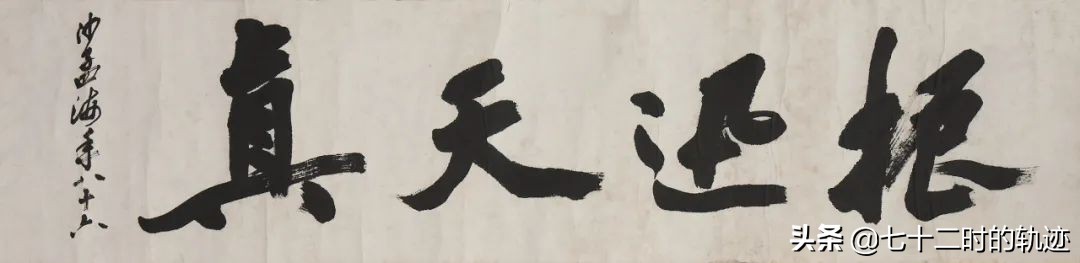 振迅天真
沙孟海年八十六
头条 @七十二时的轨迹